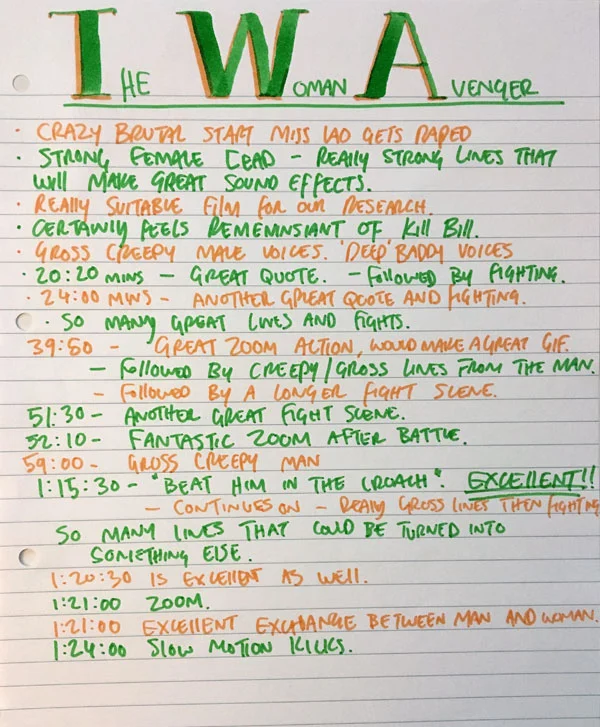 THE WOMAN AVENGER
· CRAZY BRUTAL START MISS LAO GETS RAPED
· STRONG FEMALE LEAD - REALLY STRONG LINES THAT
WILL MAKE GREAT SOUND EFFECTS.
· REALLY SUITABLE FILM FOR OUR RESEARCH.
· CERTAINLY FEELS REMEMNSIANT OF KILL BILL.
· GROSS CREEPY MALE VOICES. 'DEEP' BADDY VOICES
· 20:20 MINS - GREAT QUOTE. - FOLLOWED BY FIGHTING.
· 24:00 MINS - ANOTHER GREAT QUOTE AND FIGHTING.
· SO MANY GREAT LINES AND FIGHTS.
39:50 - GREAT ZOOM ACTION, WOULD MAKE A GREAT GIF.
- FOLLOWED BY CREEPY/GROSS LINES FROM THE MAN.
- FOLLOWED BY A LONGER FIGHT SCENE.
51:30 - ANOTHER GREAT FIGHT SCENE.
52:10 - FANTASTIC ZOOM AFTER BATTLE.
59:00 - GROSS CREEPY MAN
1:15:30 - "BEAT HIM IN THE CROACH". EXCELLENT!!
- CONTINUES ON - REALLY GROSS LINES THEN FIGHTING
SO MANY LINES THAT COULD BE TURNED INTO
SOMETHING ELSE.
1:20:30 IS EXCELLENT AS WELL.
1:21:00 ZOOM.
1:21:00 EXCELLENT EXCHANGE BETWEEN MAN AND WOMAN.
1:24:00 SLOW MOTION KICKS.